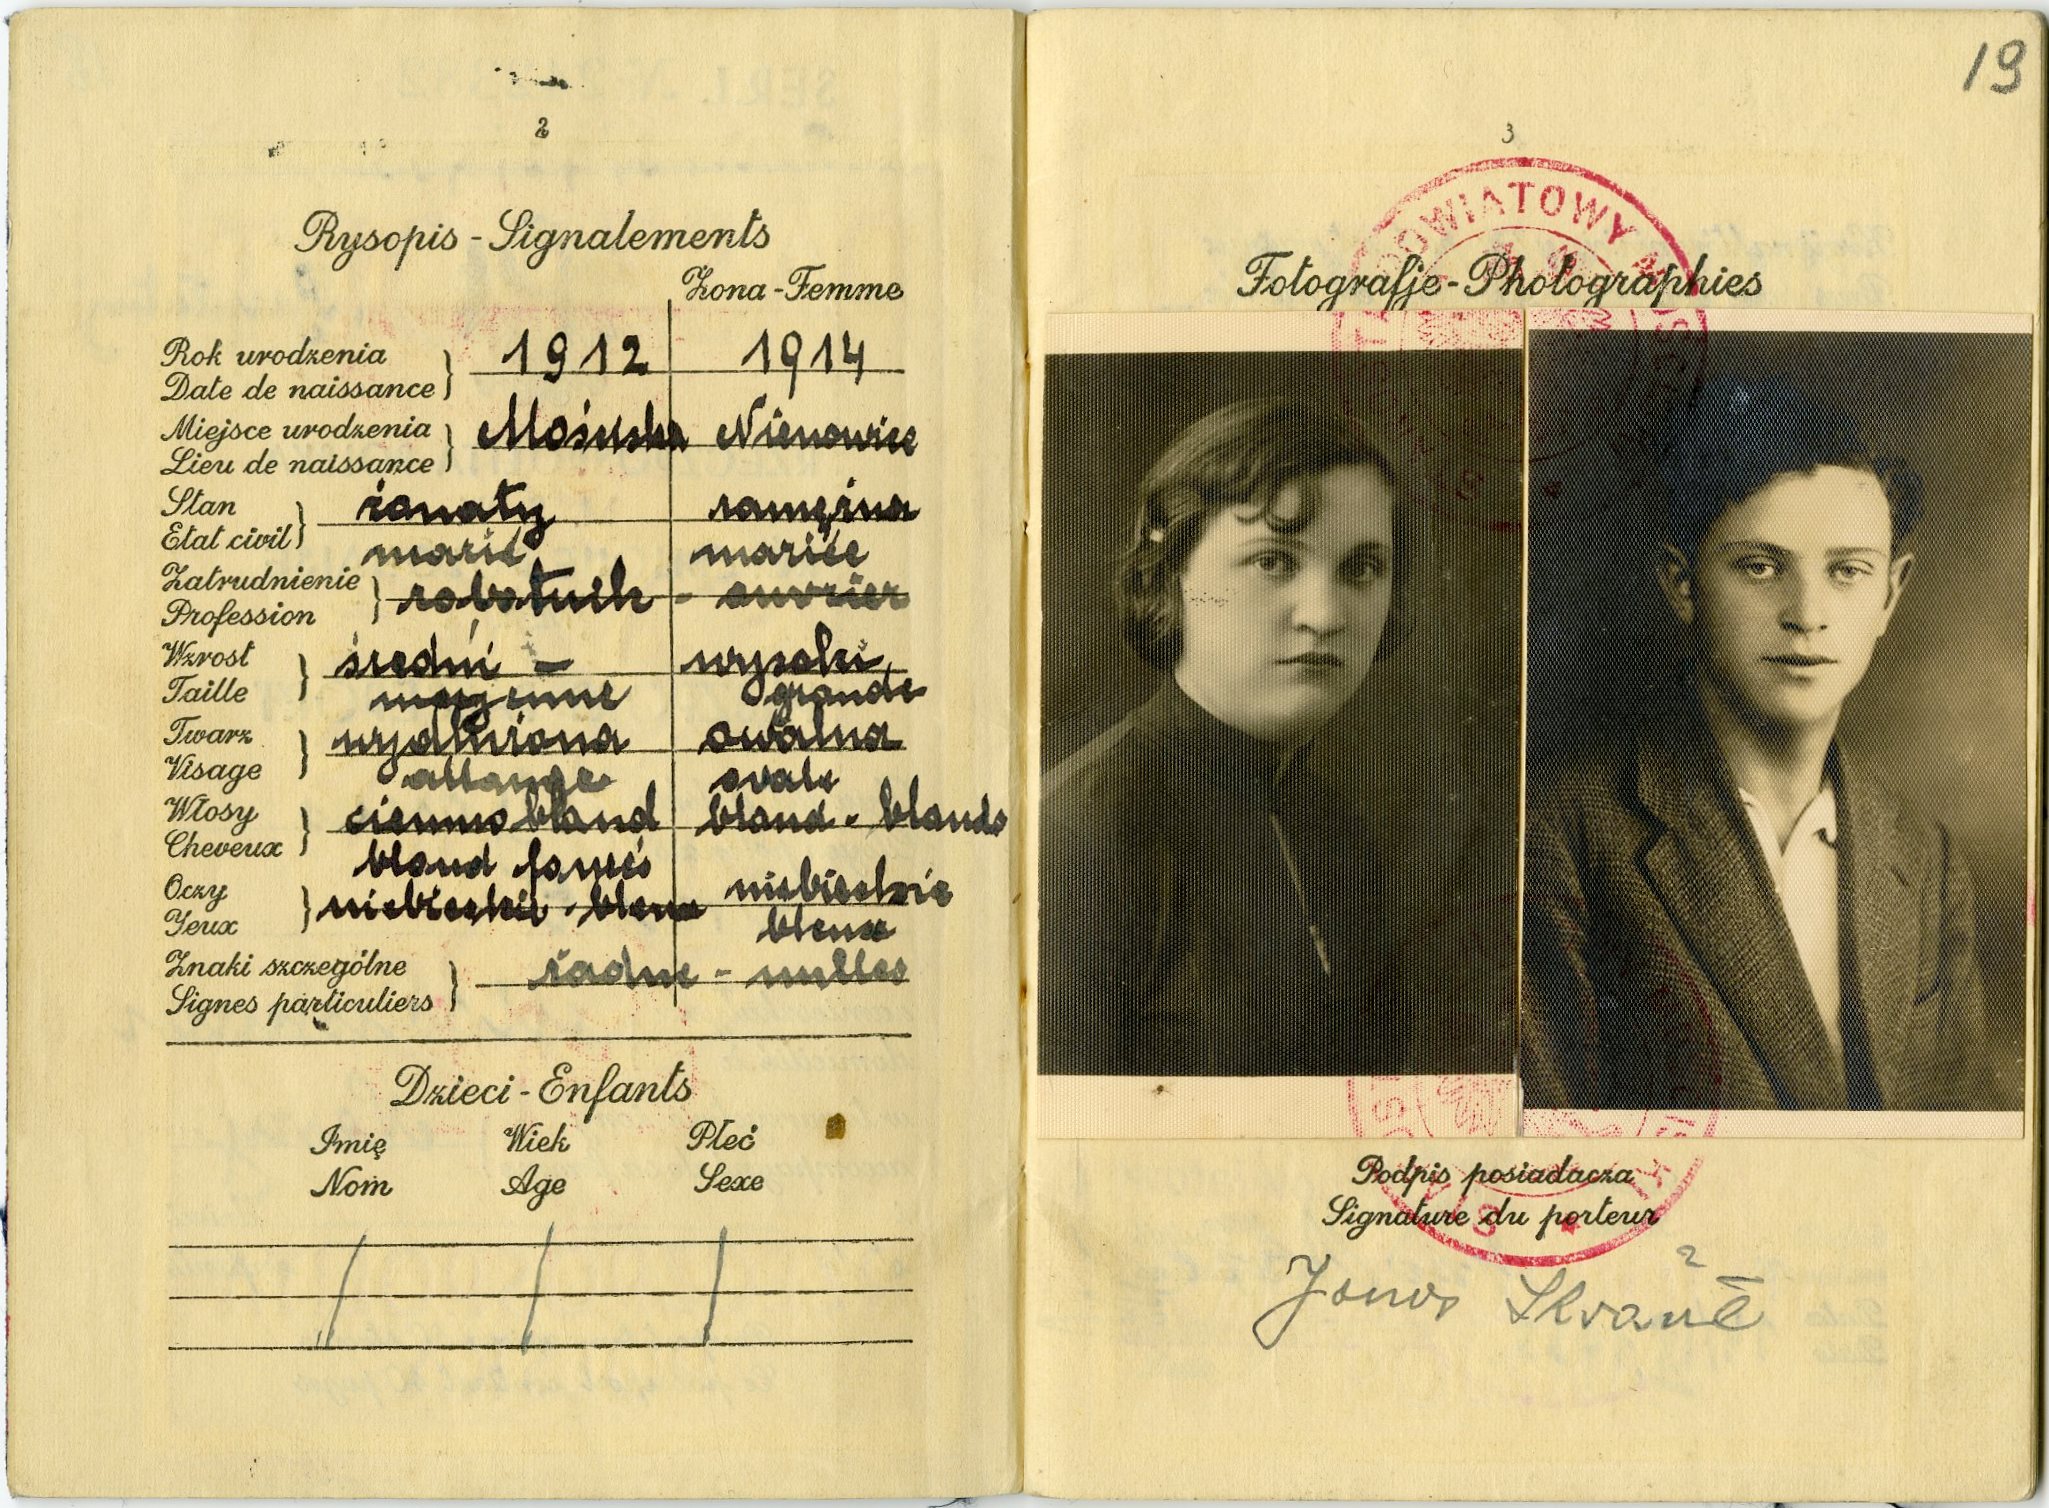 2
Rysopis - Signalements
Żona - Femme
Rok urodzenia
Date de naissance
1912 1914
Miejsce urodzenia
Lieu de naissance
Mościska Nienowice
Stan
Etat civil
żonaty zamężna
marié mariée
Zatrudnienie
Profession
robotnik - ouvrier
Wzrost
Taille
średni - wysoki
moyenne grande
Twarz
Visage
owalna
allongé ovale
Włosy
Cheveux
ciemno blond blond - blonds
blond
Oczy
Yeux
niebieskie - bleux niebieskie
bleux
Znaki szczególne
Signes particuliers
żadne - nulles
Dzieci - Enfants
Imię Wiek Płeć
Nom Age Sexe
19
3
POWIATOWY
Fotografje - Photographies
Podpis posiadacza
Signature du porteur